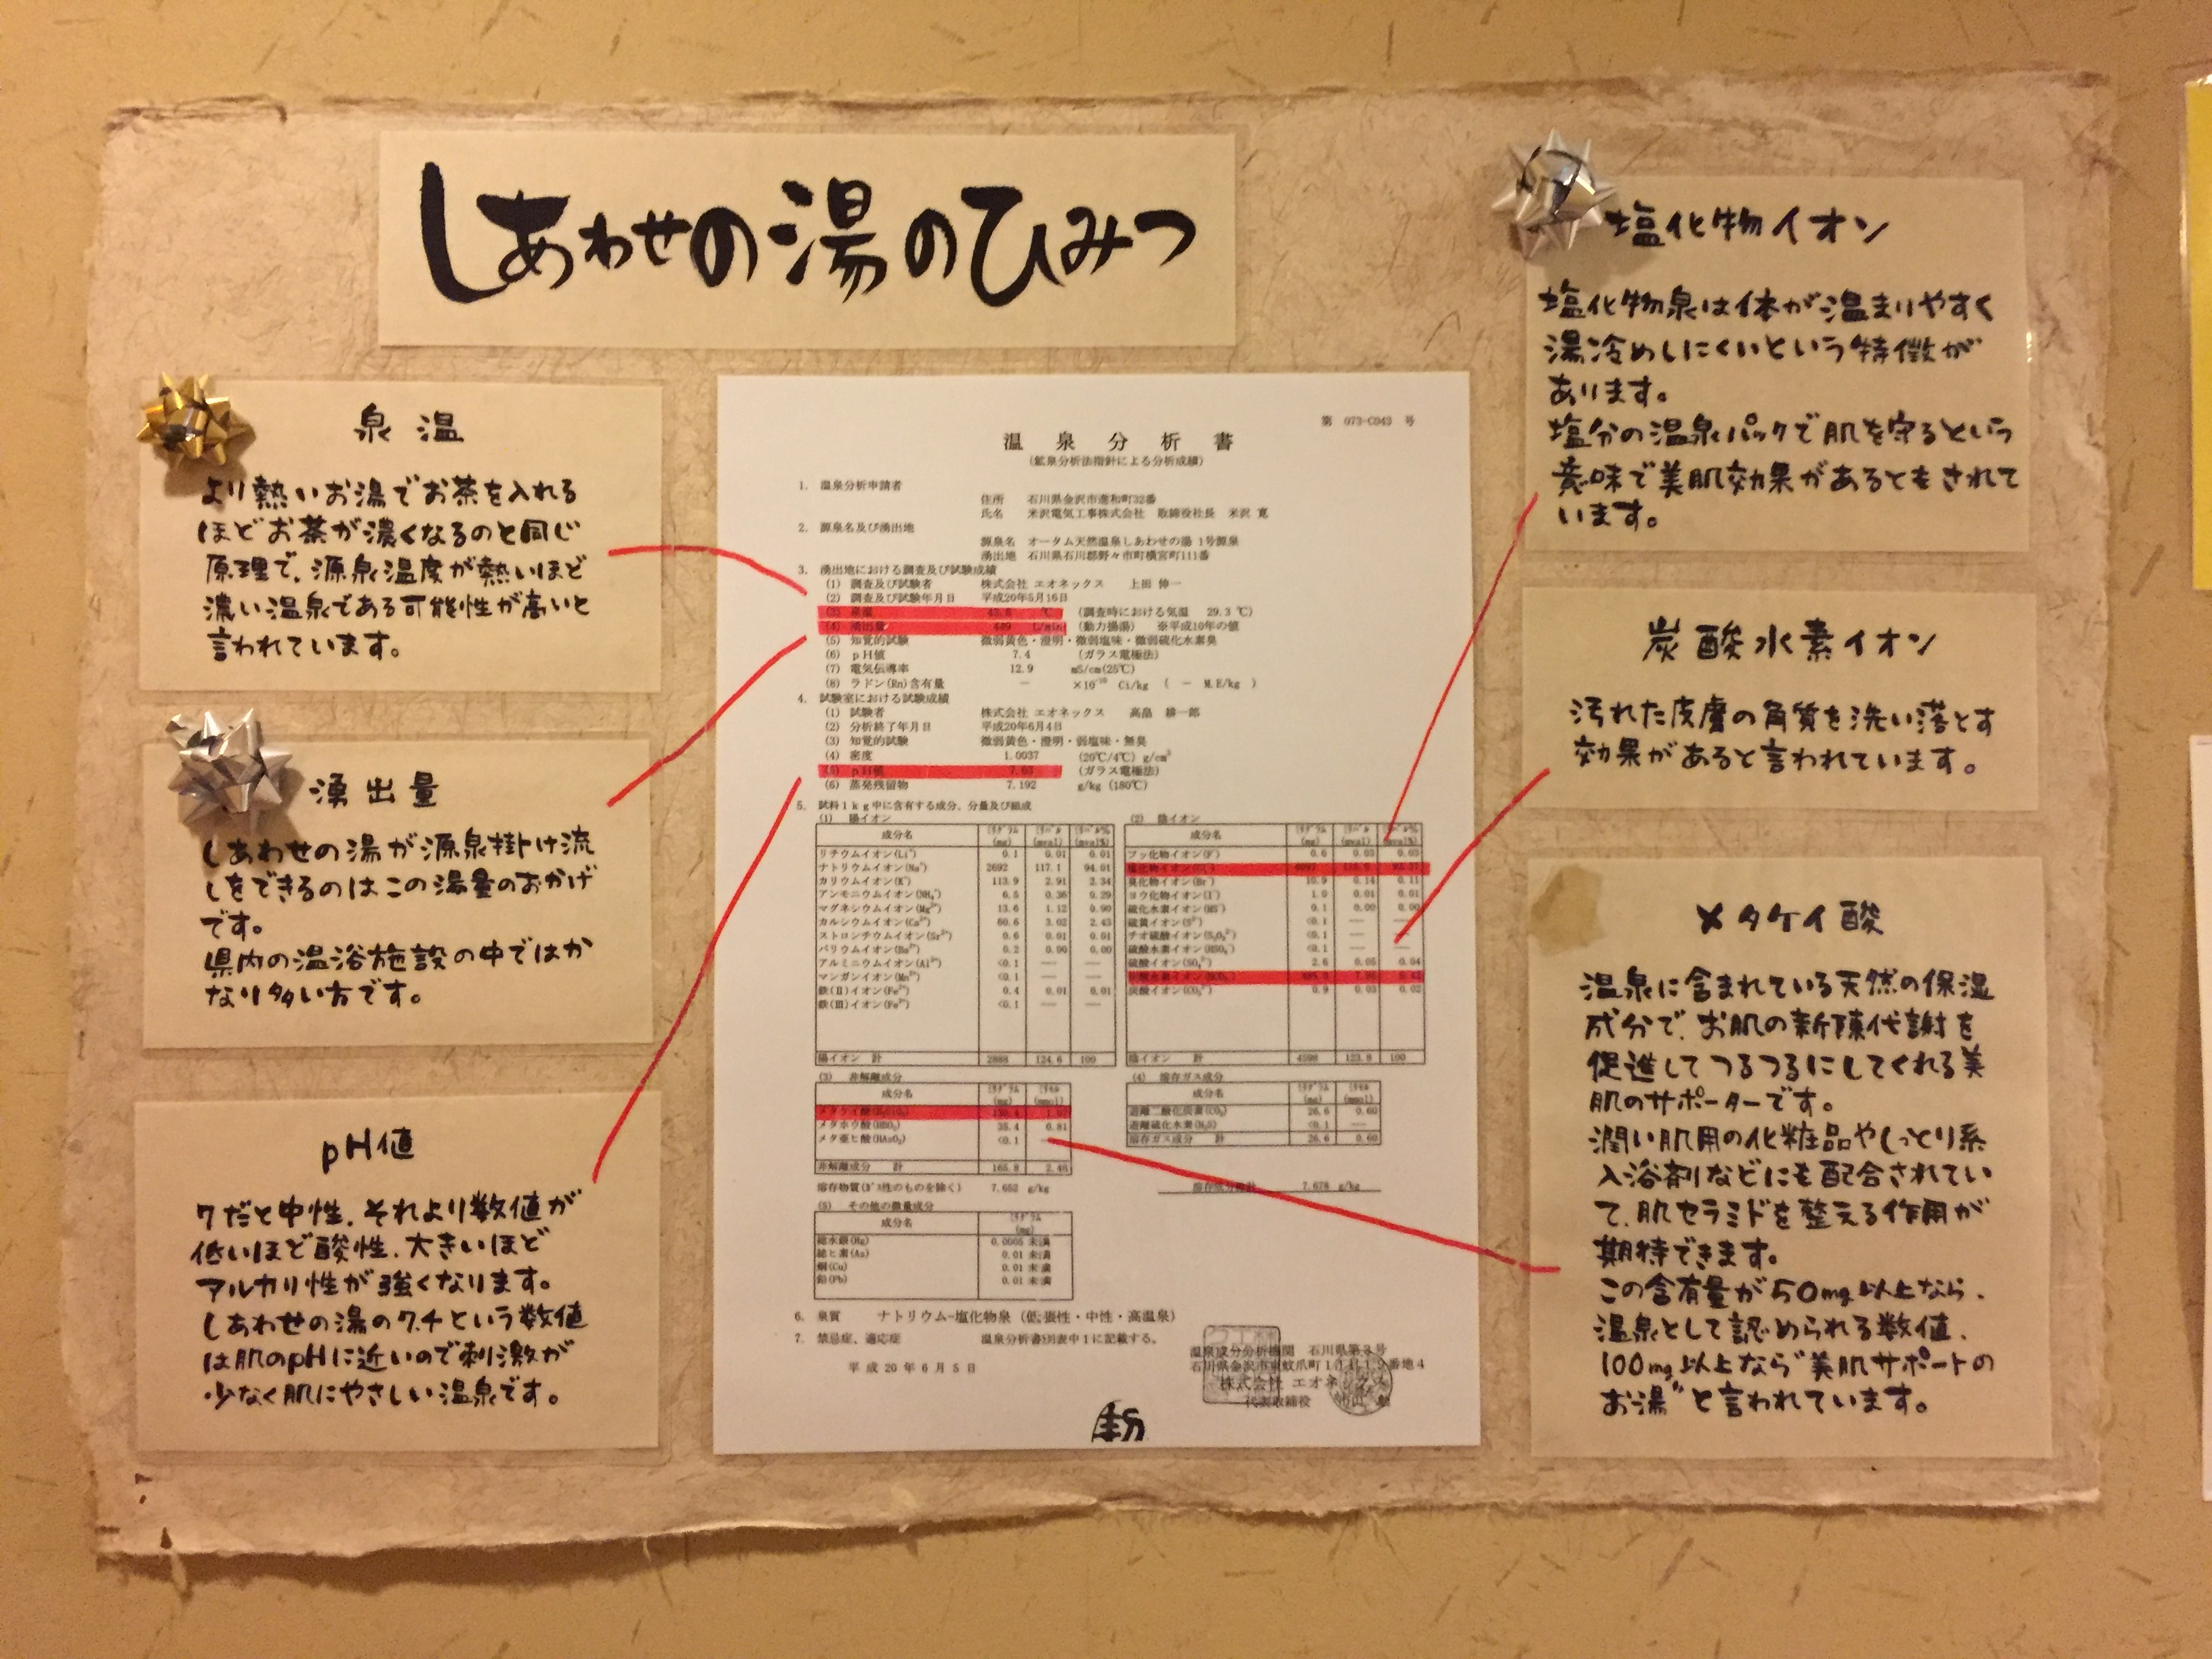 しあわせの湯のひみつ
泉温
より熱いお湯でお茶を入れる
ほどお茶が濃くなるのと同じ
原理で、源泉温度が熱いほど
濃い温泉である可能性が高いと
言われています。
湧出量
しあわせの湯が源泉掛け流
しをできるのはこの湯量のおかげ
です。
県内の温浴施設の中ではか
なり多い方です。
pH値
7だと中性、それより数値が
低いほど酸性、大きいほど
アルカリ性が強くなります。
しあわせの湯の7.4という数値
は肌のpHに近いので刺激が
少なく肌にやさしい温泉です。
第 073-C043 号
温泉分析書
(鉱泉分析法指針による分析成績)
1. 温泉分析申請者
住所 石川県金沢市進和町32番
氏名 米沢電気工事株式会社 取締役社長 米沢 寛
2. 源泉名及び湧出地
源泉名 オータム天然温泉しあわせの湯 1号源泉
湧出地 石川県石川郡野々市町横宮町111番
3. 湧出地における調査及び試験成績
(1) 調査及び試験者 株式会社 エオネックス 上田 伸一
(2) 調査及び試験年月日 平成20年5月16日
(3) 泉温 ℃ (調査時における気温 29.3 ℃)
(4) 湧出量 L/min (動力揚湯) ※平成10年の値
(5) 知覚的試験 微弱黄色・澄明・微弱塩味・微弱硫化水素臭
(6) pH値 7.4 (ガラス電極法)
(7) 電気伝導率 12.9 mS/cm(25℃)
(8) ラドン(Rn)含有量 — ×10⁻¹⁰ Ci/kg ( — M.E/kg )
4. 試験室における試験成績
(1) 試験者 株式会社 エオネックス 高畠 耕一郎
(2) 分析終了年月日 平成20年6月4日
(3) 知覚的試験 微弱黄色・澄明・弱塩味・無臭
(4) 密度 1.0037 (20℃/4℃) g/cm³
(5) pH値 (ガラス電極法)
(6) 蒸発残留物 7.192 g/kg (180℃)
5. 試料1kg中に含有する成分、分量及び組成
(1) 陽イオン
成分名 ミリグラム(mg) ミリバル(mval) ミリバル%(mval%)
リチウムイオン(Li⁺) 0.1 0.01 0.01
ナトリウムイオン(Na⁺) 2692 117.1 94.01
カリウムイオン(K⁺) 113.9 2.91 2.34
アンモニウムイオン(NH₄⁺) 6.5 0.36 0.29
マグネシウムイオン(Mg²⁺) 13.6 1.12 0.90
カルシウムイオン(Ca²⁺) 60.6 3.02 2.43
ストロンチウムイオン(Sr²⁺) 0.6 0.01 0.01
バリウムイオン(Ba²⁺) 0.2 0.00 0.00
アルミニウムイオン(Al³⁺) <0.1 — —
マンガンイオン(Mn²⁺) <0.1 — —
鉄(Ⅱ)イオン(Fe²⁺) 0.4 0.01 0.01
鉄(Ⅲ)イオン(Fe³⁺) <0.1 — —
陽イオン 計 2888 124.6 100
(2) 陰イオン
成分名 ミリグラム(mg) ミリバル(mval) ミリバル%(mval%)
フッ化物イオン(F⁻) 0.6 0.03 0.03
塩化物イオン(Cl⁻)
臭化物イオン(Br⁻) 10.9 0.14 0.11
ヨウ化物イオン(I⁻) 1.0 0.01 0.01
硫化水素イオン(HS⁻) 0.1 0.00 0.00
硫黄イオン(S²⁻) <0.1 — —
チオ硫酸イオン(S₂O₃²⁻) <0.1 — —
硫酸水素イオン(HSO₄⁻) <0.1 — —
硫酸イオン(SO₄²⁻) 2.6 0.05 0.04
炭酸水素イオン(HCO₃⁻)
炭酸イオン(CO₃²⁻) 0.9 0.03 0.02
陰イオン 計 4598 123.8 100
(3) 非解離成分
成分名 ミリグラム(mg) ミリモル(mmol)
メタケイ酸(H₂SiO₃)
メタホウ酸(HBO₂) 35.4 0.81
メタ亜ヒ酸(HAsO₂) <0.1
非解離成分 計 165.8 2.48
(4) 溶存ガス成分
成分名 ミリグラム(mg) ミリモル(mmol)
遊離二酸化炭素(CO₂) 26.6 0.60
遊離硫化水素(H₂S) <0.1 —
溶存ガス成分 計 26.6 0.60
溶存物質(ガス性のものを除く) 7.652 g/kg
溶存成分総計 7.678 g/kg
(5) その他の微量成分
成分名 ミリグラム(mg)
総水銀(Hg) 0.0005 未満
総ヒ素(As) 0.01 未満
銅(Cu) 0.01 未満
鉛(Pb) 0.01 未満
6. 泉質 ナトリウム-塩化物泉 (低張性・中性・高温泉)
7. 禁忌症、適応症 温泉分析書別表中1に記載する。
平成20年6月5日
温泉成分分析機関 石川県第2号
石川県金沢市東蚊爪町
株式会社 エオネックス
代表取締役
塩化物イオン
塩化物泉は体が温まりやすく
湯冷めしにくいという特徴が
あります。
塩分の温泉パックで肌を守るという
意味で美肌効果があるともされて
います。
炭酸水素イオン
汚れた皮膚の角質を洗い落とす
効果があると言われています。
メタケイ酸
温泉に含まれている天然の保湿
成分で、お肌の新陳代謝を
促進してつるつるにしてくれる美
肌のサポーターです。
潤い肌用の化粧品やしっとり系
入浴剤などにも配合されてい
て、肌セラミドを整える作用が
期待できます。
この含有量が50mg以上なら、
温泉として認められる数値、
100mg以上なら“美肌サポートの
お湯”と言われています。